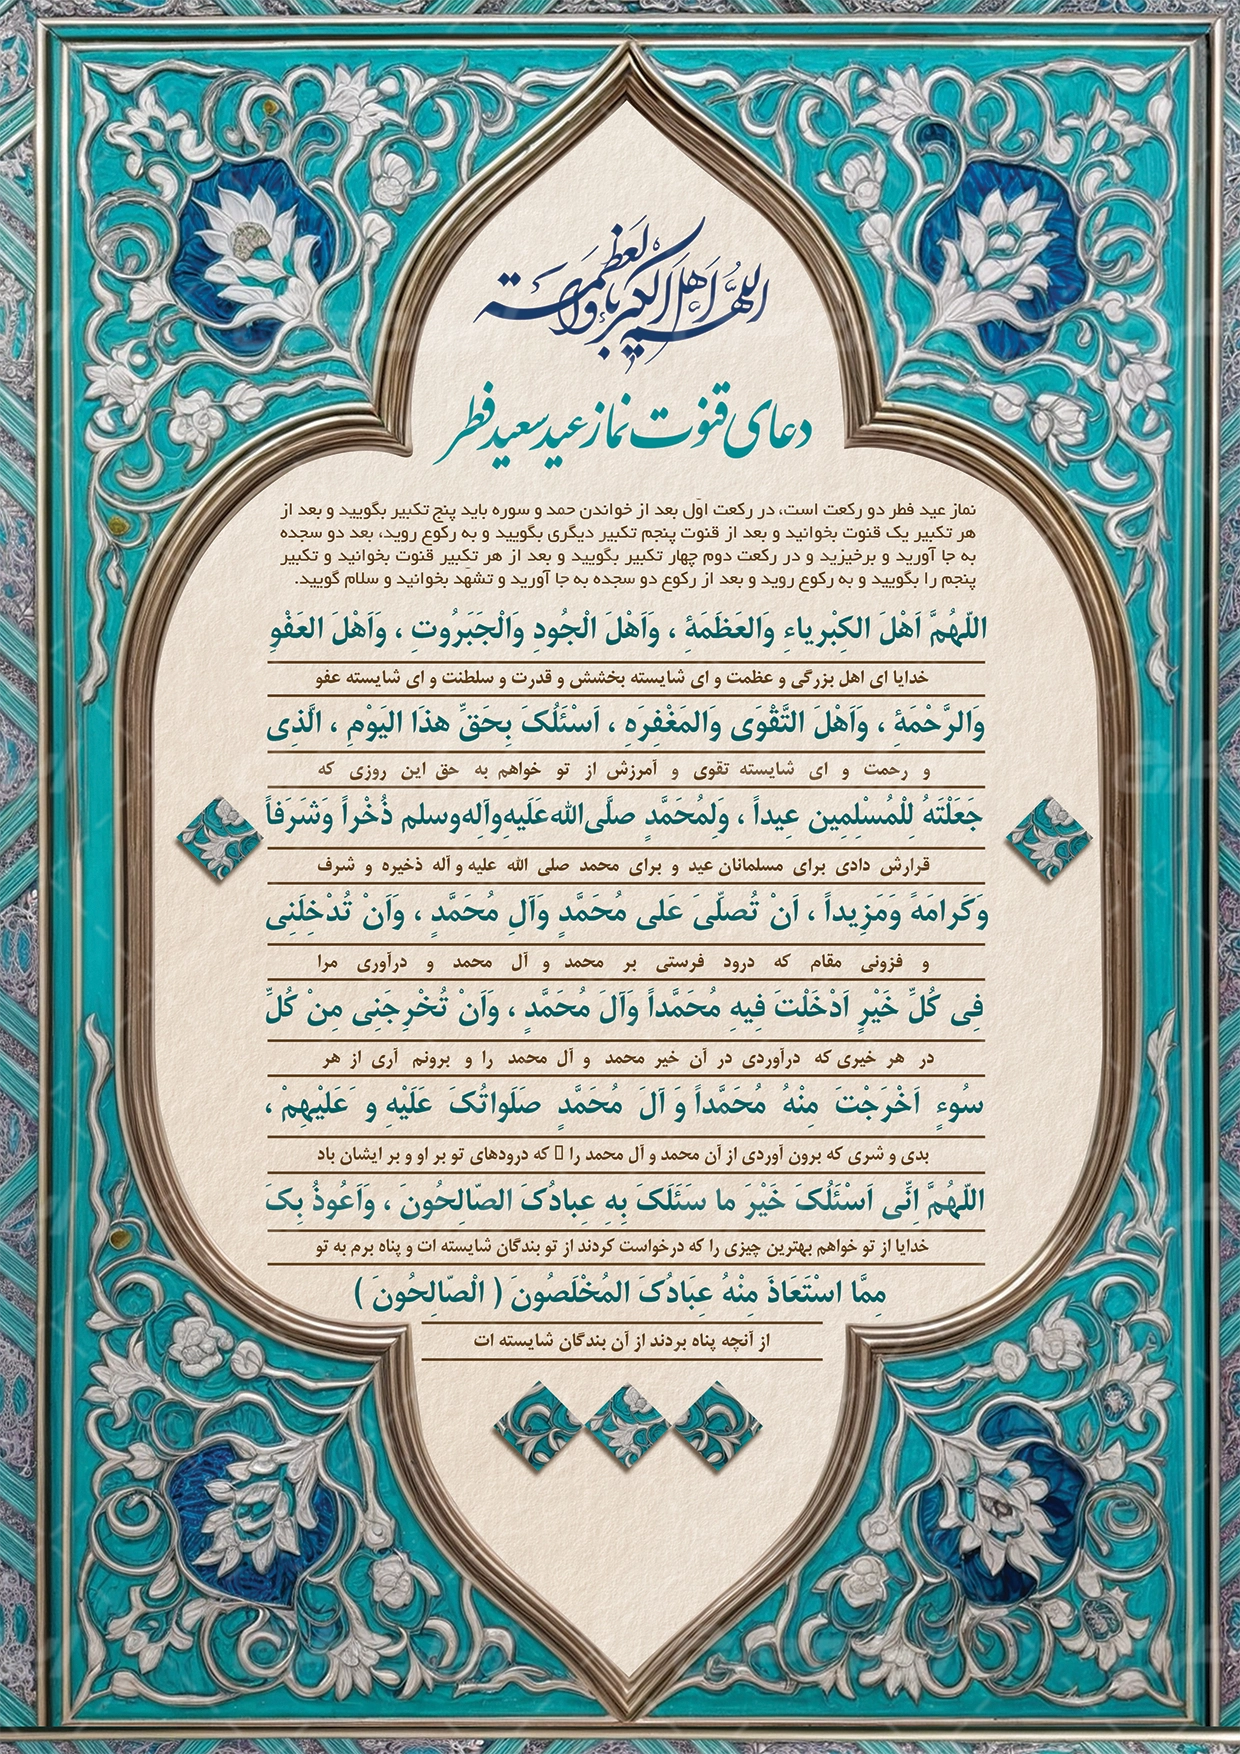 اللهم اهل الکبریاء والعظمة
دعای قنوت نماز عید سعید فطر
نماز عید فطر دو رکعت است، در رکعت اوّل بعد از خواندن حمد و سوره باید پنج تکبیر بگویید و بعد از
هر تکبیر یک قنوت بخوانید و بعد از قنوت پنجم تکبیر دیگری بگویید و به رکوع روید، بعد دو سجده
به جا آورید و برخیزید و در رکعت دوم چهار تکبیر بگویید و بعد از هر تکبیر قنوت بخوانید و تکبیر
پنجم را بگویید و به رکوع روید و بعد از رکوع دو سجده به جا آورید و تشهّد بخوانید و سلام گویید.
اللّهُمَّ اَهْلَ الکِبْریاءِ وَالعَظَمَهِٔ ، وَاَهْلَ الْجُودِ وَالْجَبَرُوتِ ، وَاَهْلَ العَفْوِ
خدایا ای اهل بزرگی و عظمت و ای شایسته بخشش و قدرت و سلطنت و ای شایسته عفو
وَالرَّحْمَهِٔ ، وَاَهْلَ التَّقْوَی وَالمَغْفِرَهِ ، اَسْئَلُکَ بِحَقِّ هذَا الیَوْمِ ، الَّذِی
و رحمت و ای شایسته تقوی و آمرزش از تو خواهم به حق این روزی که
جَعَلْتَهُ لِلْمُسْلِمِین عِیداً ، وَلِمُحَمَّدٍ صلَّی‌الله‌عَلَیهِ‌وآلِه‌وسلم ذُخْراً وَشَرَفاً
قرارش دادی برای مسلمانان عید و برای محمد صلی الله علیه و آله ذخیره و شرف
وَکَرامَهً وَمَزِیداً ، اَنْ تُصلِّیَ عَلی مُحَمَّدٍ وَآلِ مُحَمَّدٍ ، وَاَنْ تُدْخِلَنِی
و فزونی مقام که درود فرستی بر محمد و آل محمد و درآوری مرا
فِی کُلِّ خَیْرٍ اَدْخَلْتَ فِیهِ مُحَمَّداً وَآلَ مُحَمَّدٍ ، وَاَنْ تُخْرِجَنِی مِنْ کُلِّ
در هر خیری که درآوردی در آن خیر محمد و آل محمد را و برونم آری از هر
سُوءٍ اَخْرَجْتَ مِنْهُ مُحَمَّداً وَ آلَ مُحَمَّدٍ صَلَواتُکَ عَلَیْهِ وَ عَلَیْهِمْ ،
بدی و شری که برون آوردی از آن محمد و آل محمد را که درودهای تو بر او و بر ایشان باد
اللّهُمَّ اِنِّی اَسْئَلُکَ خَیْرَ ما سَئَلَکَ بِهِ عِبادُکَ الصّالِحُونَ ، وَاَعُوذُ بِکَ
خدایا از تو خواهم بهترین چیزی را که درخواست کردند از تو بندگان شایسته ات و پناه برم به تو
مِمَّا اسْتَعَاذَ مِنْهُ عِبَادُکَ المُخْلَصُونَ ( الْصّالِحُونَ )
از آنچه پناه بردند از آن بندگان شایسته ات